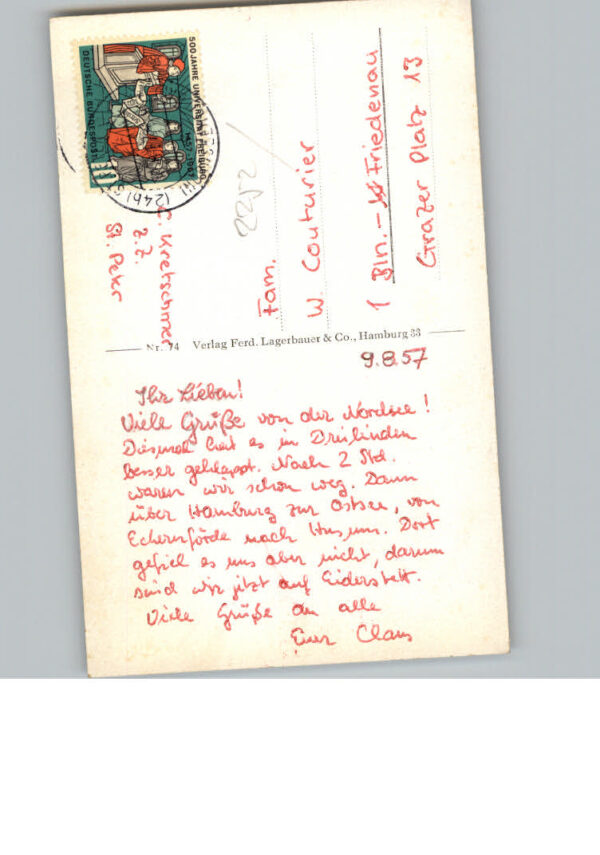 500 JAHRE UNIVERSITÄT FREIBURG
1457-1957
DEUTSCHE BUNDESPOST
10
(24b)
2252
C. Kretschmer
z. Z.
St. Peter
Fam.
W. Couturier
1 Bln.-Friedenau
Grazer Platz 13
Nr. 74 Verlag Ferd. Lagerbauer & Co., Hamburg 33
9.8.57
Ihr Lieben!
Viele Grüße von der Nordsee!
Diesmal hat es in Dreilinden
besser geklappt. Nach 2 Std.
waren wir schon weg. Dann
über Hamburg zur Ostsee, von
Eckernförde nach Husum. Dort
gefiel es uns aber nicht, darum
sind wir jetzt auf Eiderstett.
Viele Grüße an alle
Euer Claus